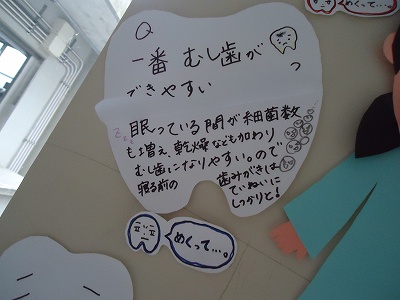 めくって…。
Q
一番 むし歯が
できやすい
?
眠っている間が細菌数
も増え、乾燥なども加わり
むし歯になりやすい。ので
寝る前の 歯みがきは
ていねいに
しっかりと!
めくって…。